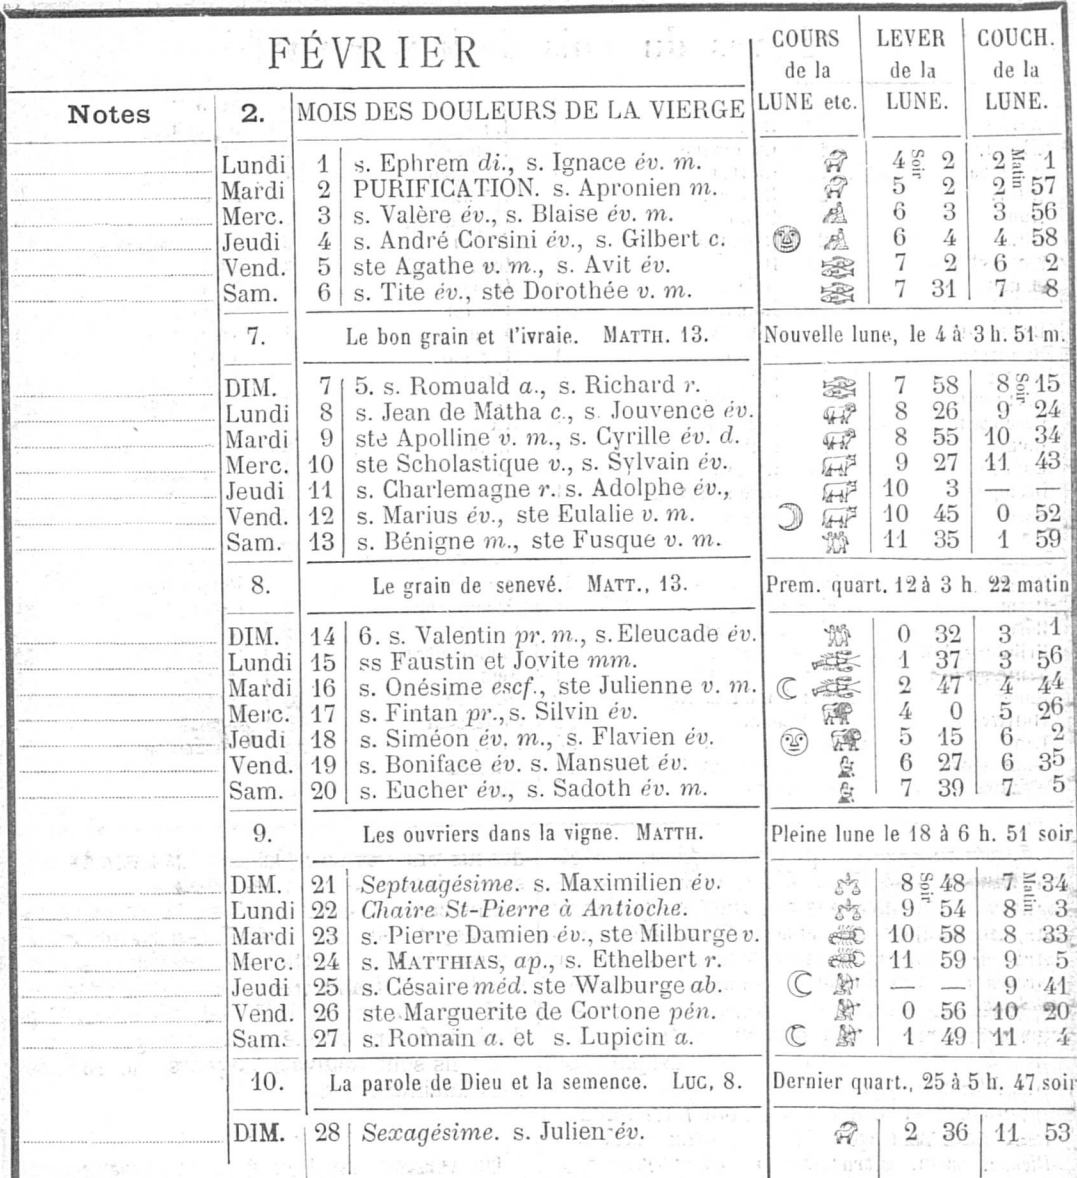 FÉVRIER COURS de la LUNE etc. LEVER de la LUNE. COUCH. de la LUNE.
Notes 2. MOIS DES DOULEURS DE LA VIERGE
Lundi 1 s. Ephrem di., s. Ignace év. m. 4 Soir 2 2 Matin 1
Mardi 2 PURIFICATION. s. Apronien m. 5 2 2 57
Merc. 3 s. Valère év., s. Blaise év. m. 6 3 3 56
Jeudi 4 s. André Corsini év., s. Gilbert c. 6 4 4 58
Vend. 5 ste Agathe v. m., s. Avit év. 7 2 6 2
Sam. 6 s. Tite év., ste Dorothée v. m. 7 31 7 8
7. Le bon grain et l'ivraie. MATTH. 13. Nouvelle lune, le 4 à 3 h. 51 m.
DIM. 7 5. s. Romuald a., s. Richard r. 7 58 8 Soir 15
Lundi 8 s. Jean de Matha c., s. Jouvence év. 8 26 9 24
Mardi 9 ste Apolline v. m., s. Cyrille év. d. 8 55 10 34
Merc. 10 ste Scholastique v., s. Sylvain év. 9 27 11 43
Jeudi 11 s. Charlemagne r. s. Adolphe év., 10 3 — —
Vend. 12 s. Marius év., ste Eulalie v. m. 10 45 0 52
Sam. 13 s. Bénigne m., ste Fusque v. m. 11 35 1 59
8. Le grain de senevé. MATT., 13. Prem. quart. 12 à 3 h. 22 matin
DIM. 14 6. s. Valentin pr. m., s. Eleucade év. 0 32 3 1
Lundi 15 ss Faustin et Jovite mm. 1 37 3 56
Mardi 16 s. Onésime escf., ste Julienne v. m. 2 47 4 44
Merc. 17 s. Fintan pr., s. Silvin év. 4 0 5 26
Jeudi 18 s. Siméon év. m., s. Flavien év. 5 15 6 2
Vend. 19 s. Boniface év. s. Mansuet év. 6 27 6 35
Sam. 20 s. Eucher év., s. Sadoth év. m. 7 39 7 5
9. Les ouvriers dans la vigne. MATTH. Pleine lune le 18 à 6 h. 51 soir
DIM. 21 Septuagésime. s. Maximilien év. 8 Soir 48 7 Matin 34
Lundi 22 Chaire St-Pierre à Antioche. 9 54 8 3
Mardi 23 s. Pierre Damien év., ste Milburge v. 10 58 8 33
Merc. 24 s. MATTHIAS, ap., s. Ethelbert r. 11 59 9 5
Jeudi 25 s. Césaire méd. ste Walburge ab. — — 9 41
Vend. 26 ste Marguerite de Cortone pén. 0 56 10 20
Sam. 27 s. Romain a. et s. Lupicin a. 1 49 11 4
10. La parole de Dieu et la semence. LUC, 8. Dernier quart., 25 à 5 h. 47 soir
DIM. 28 Sexagésime. s. Julien év. 2 36 11 53